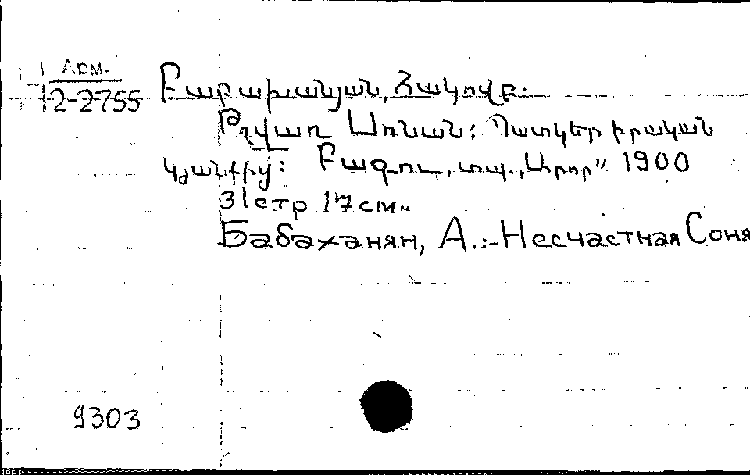 Арм.
12-2755
Բաբախանյան, Հակովբ.
Թշվառ Սոնան: Պատկեր իրական
կյանքից: Բագու, տպ. „Արոր" 1900
31стр 17см.
Бабаханян, А.:-Несчастная Соня
9303